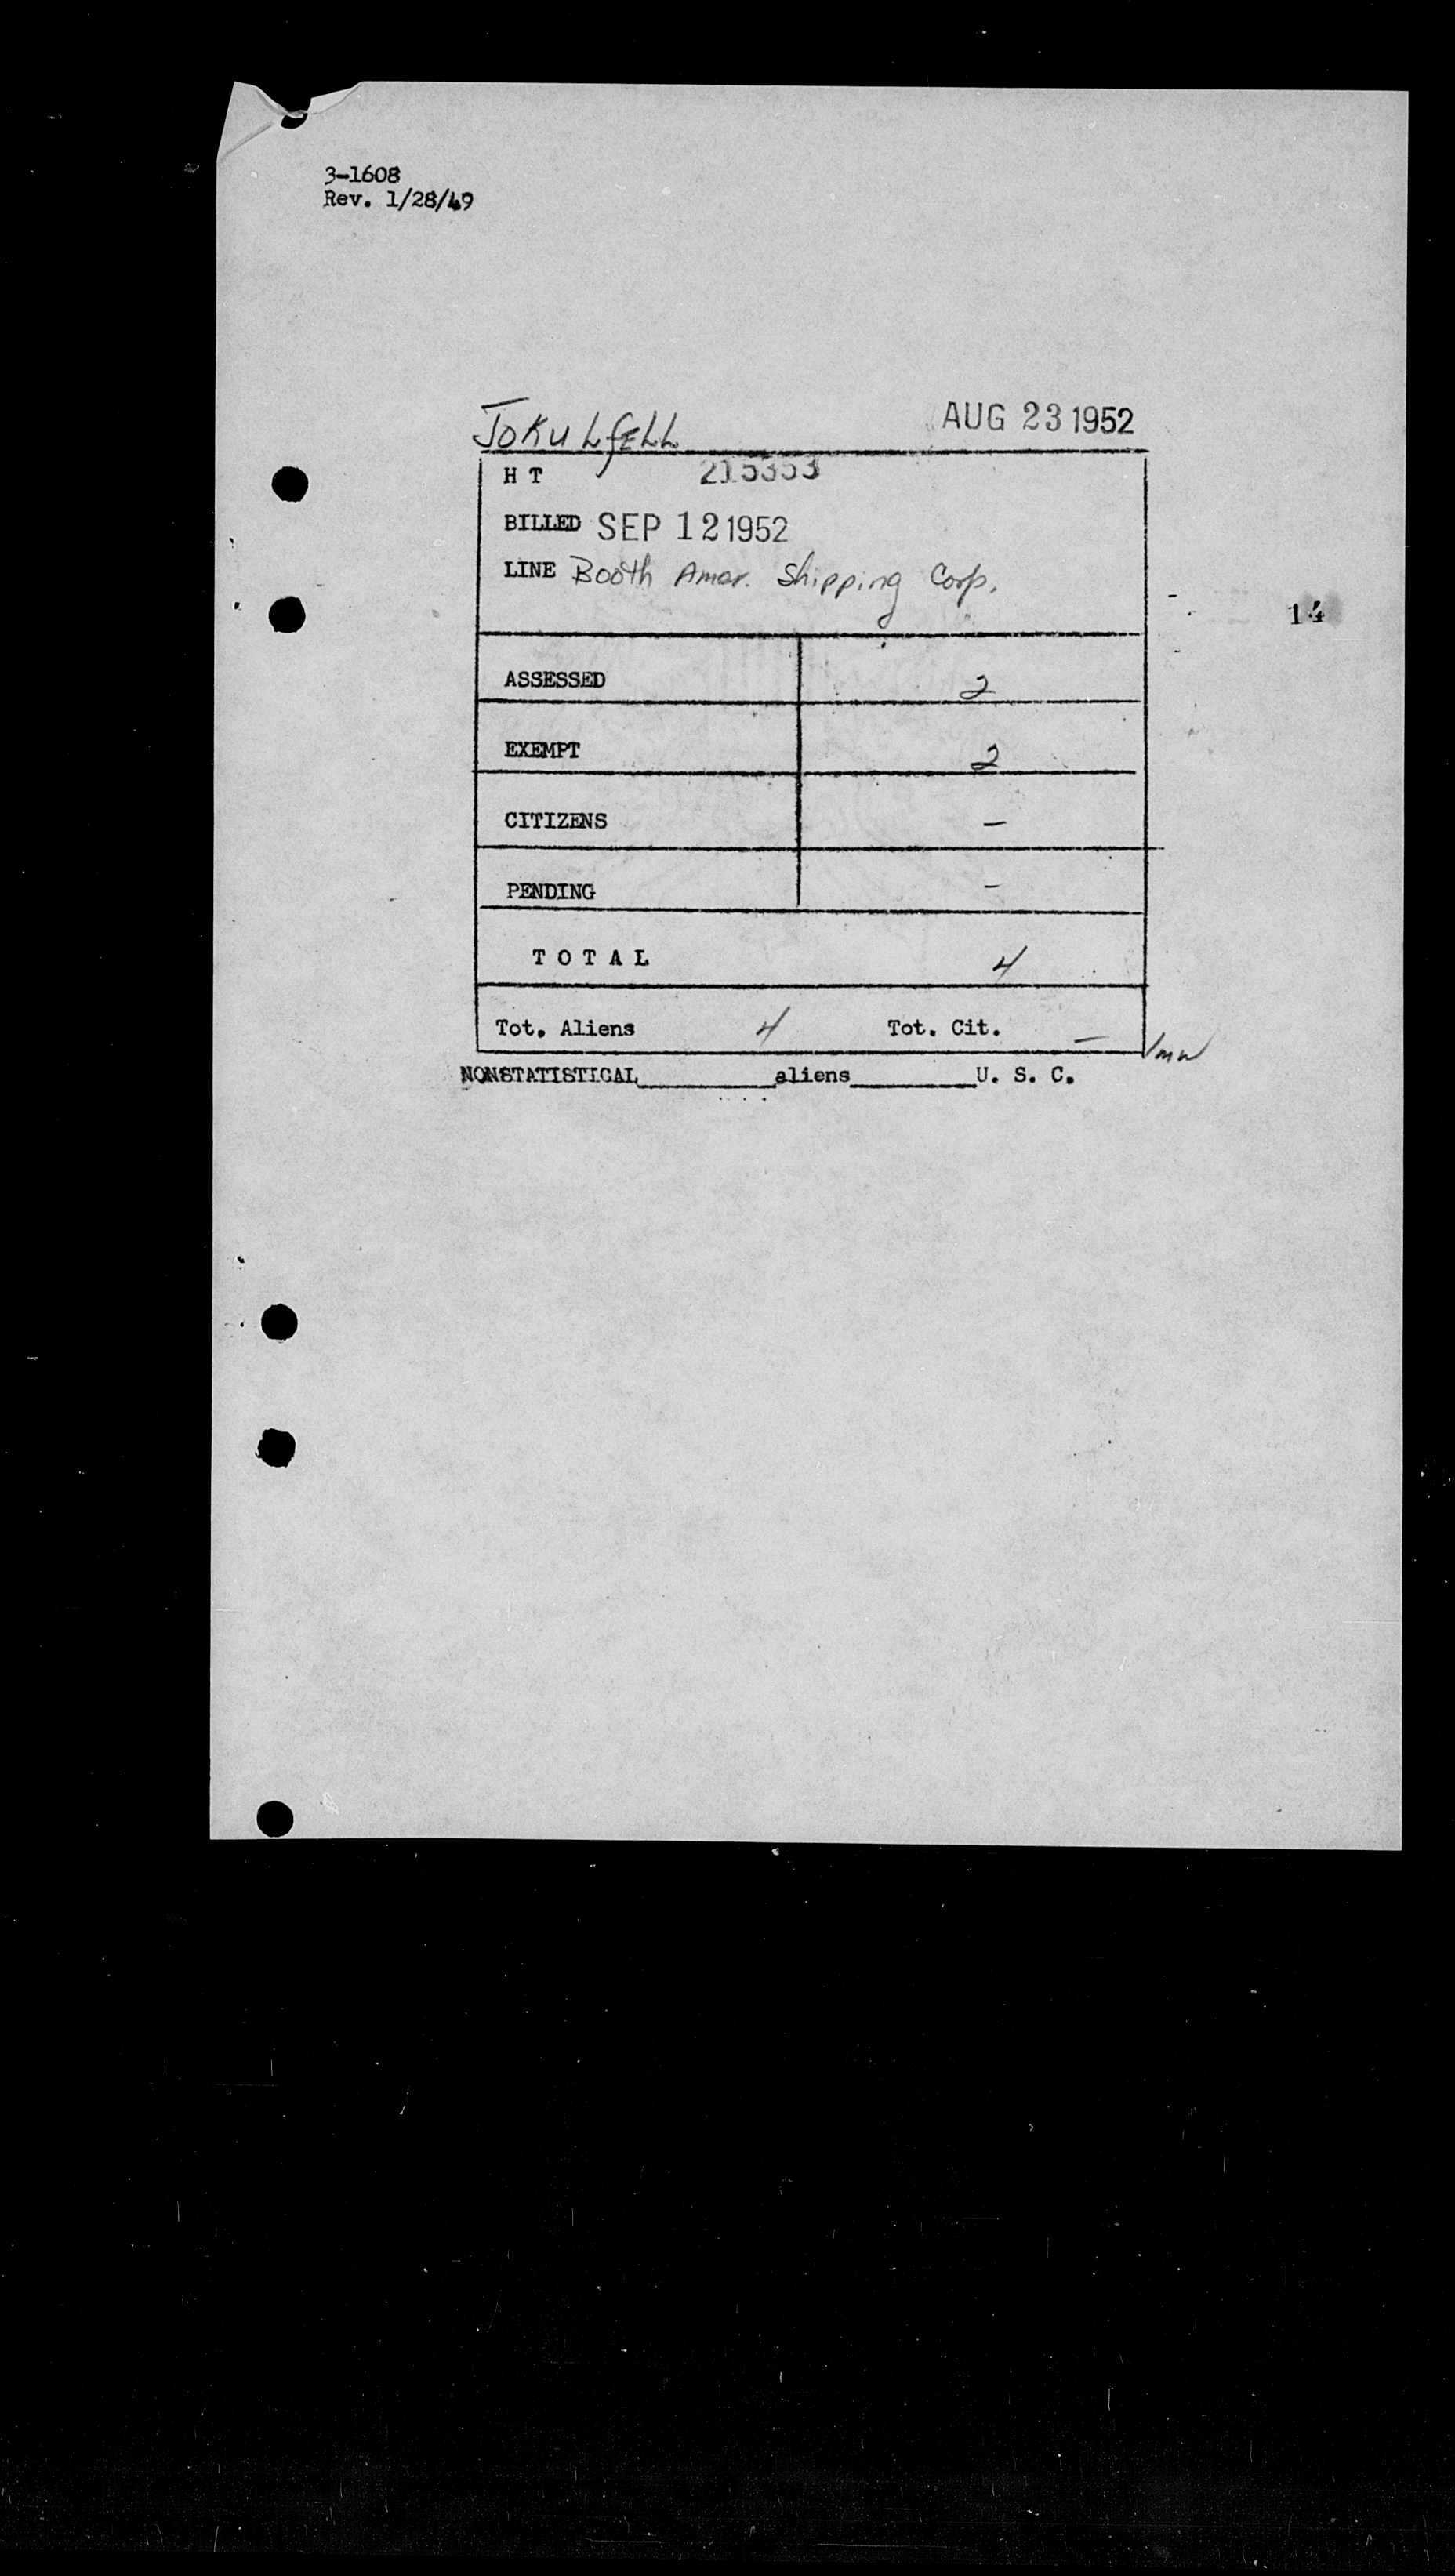 3-1608
Rev. 1/28/49
JOKULfELL AUG 23 1952
H T 215353
BILLED SEP 12 1952
LINE Booth Amer. Shipping Corp.
14
ASSESSED 2
EXEMPT 2
CITIZENS –
PENDING –
T O T A L 4
Tot. Aliens 4 Tot. Cit. –
NONSTATISTICAL__________aliens_________U. S. C.